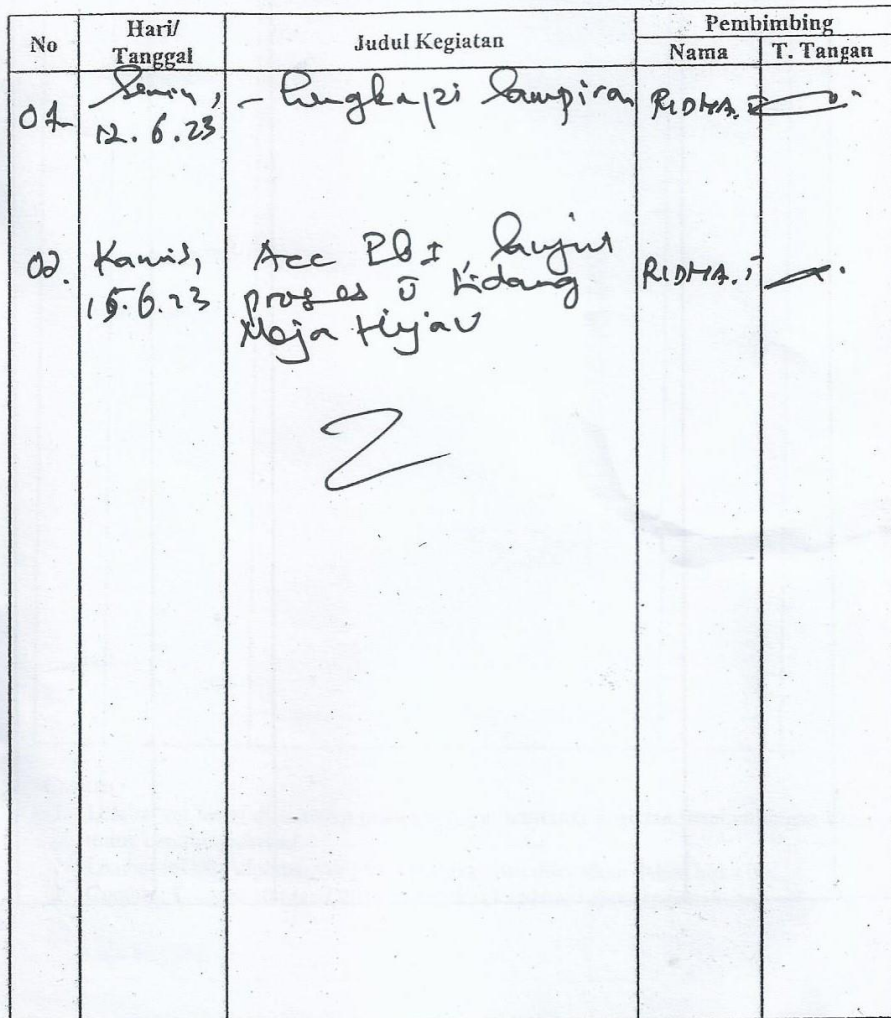 No Hari/ Tanggal Judul Kegiatan Pembimbing
Nama T. Tangan
01 Senin, 12.6.23 - Lengkapi Lampiran RIDHA.
02. Kamis, 15.6.23 Acc Pb I, lanjut RIDHA.
proses Sidang
Meja Hijau